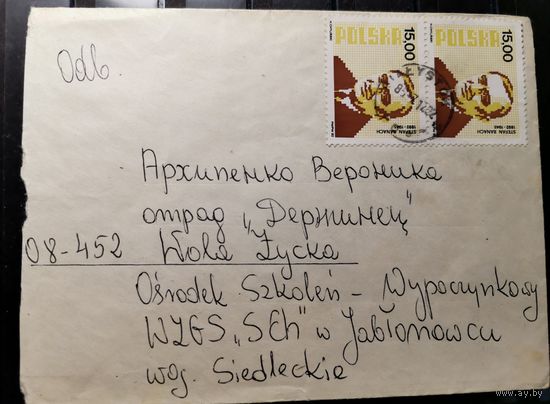 POLSKA 15.00
STEFAN BANACH
1892-1945
POLSKA 15.00
STEFAN BANACH
1892-1945
Odb.
Архипенко Вероника
отряд „Держинец"
08-452 Wola Życka
Ośrodek Szkoleń - Wypoczynkowy
WZGS „SCh" w Jabłonowcu
woj. Siedleckie
www.ay.by